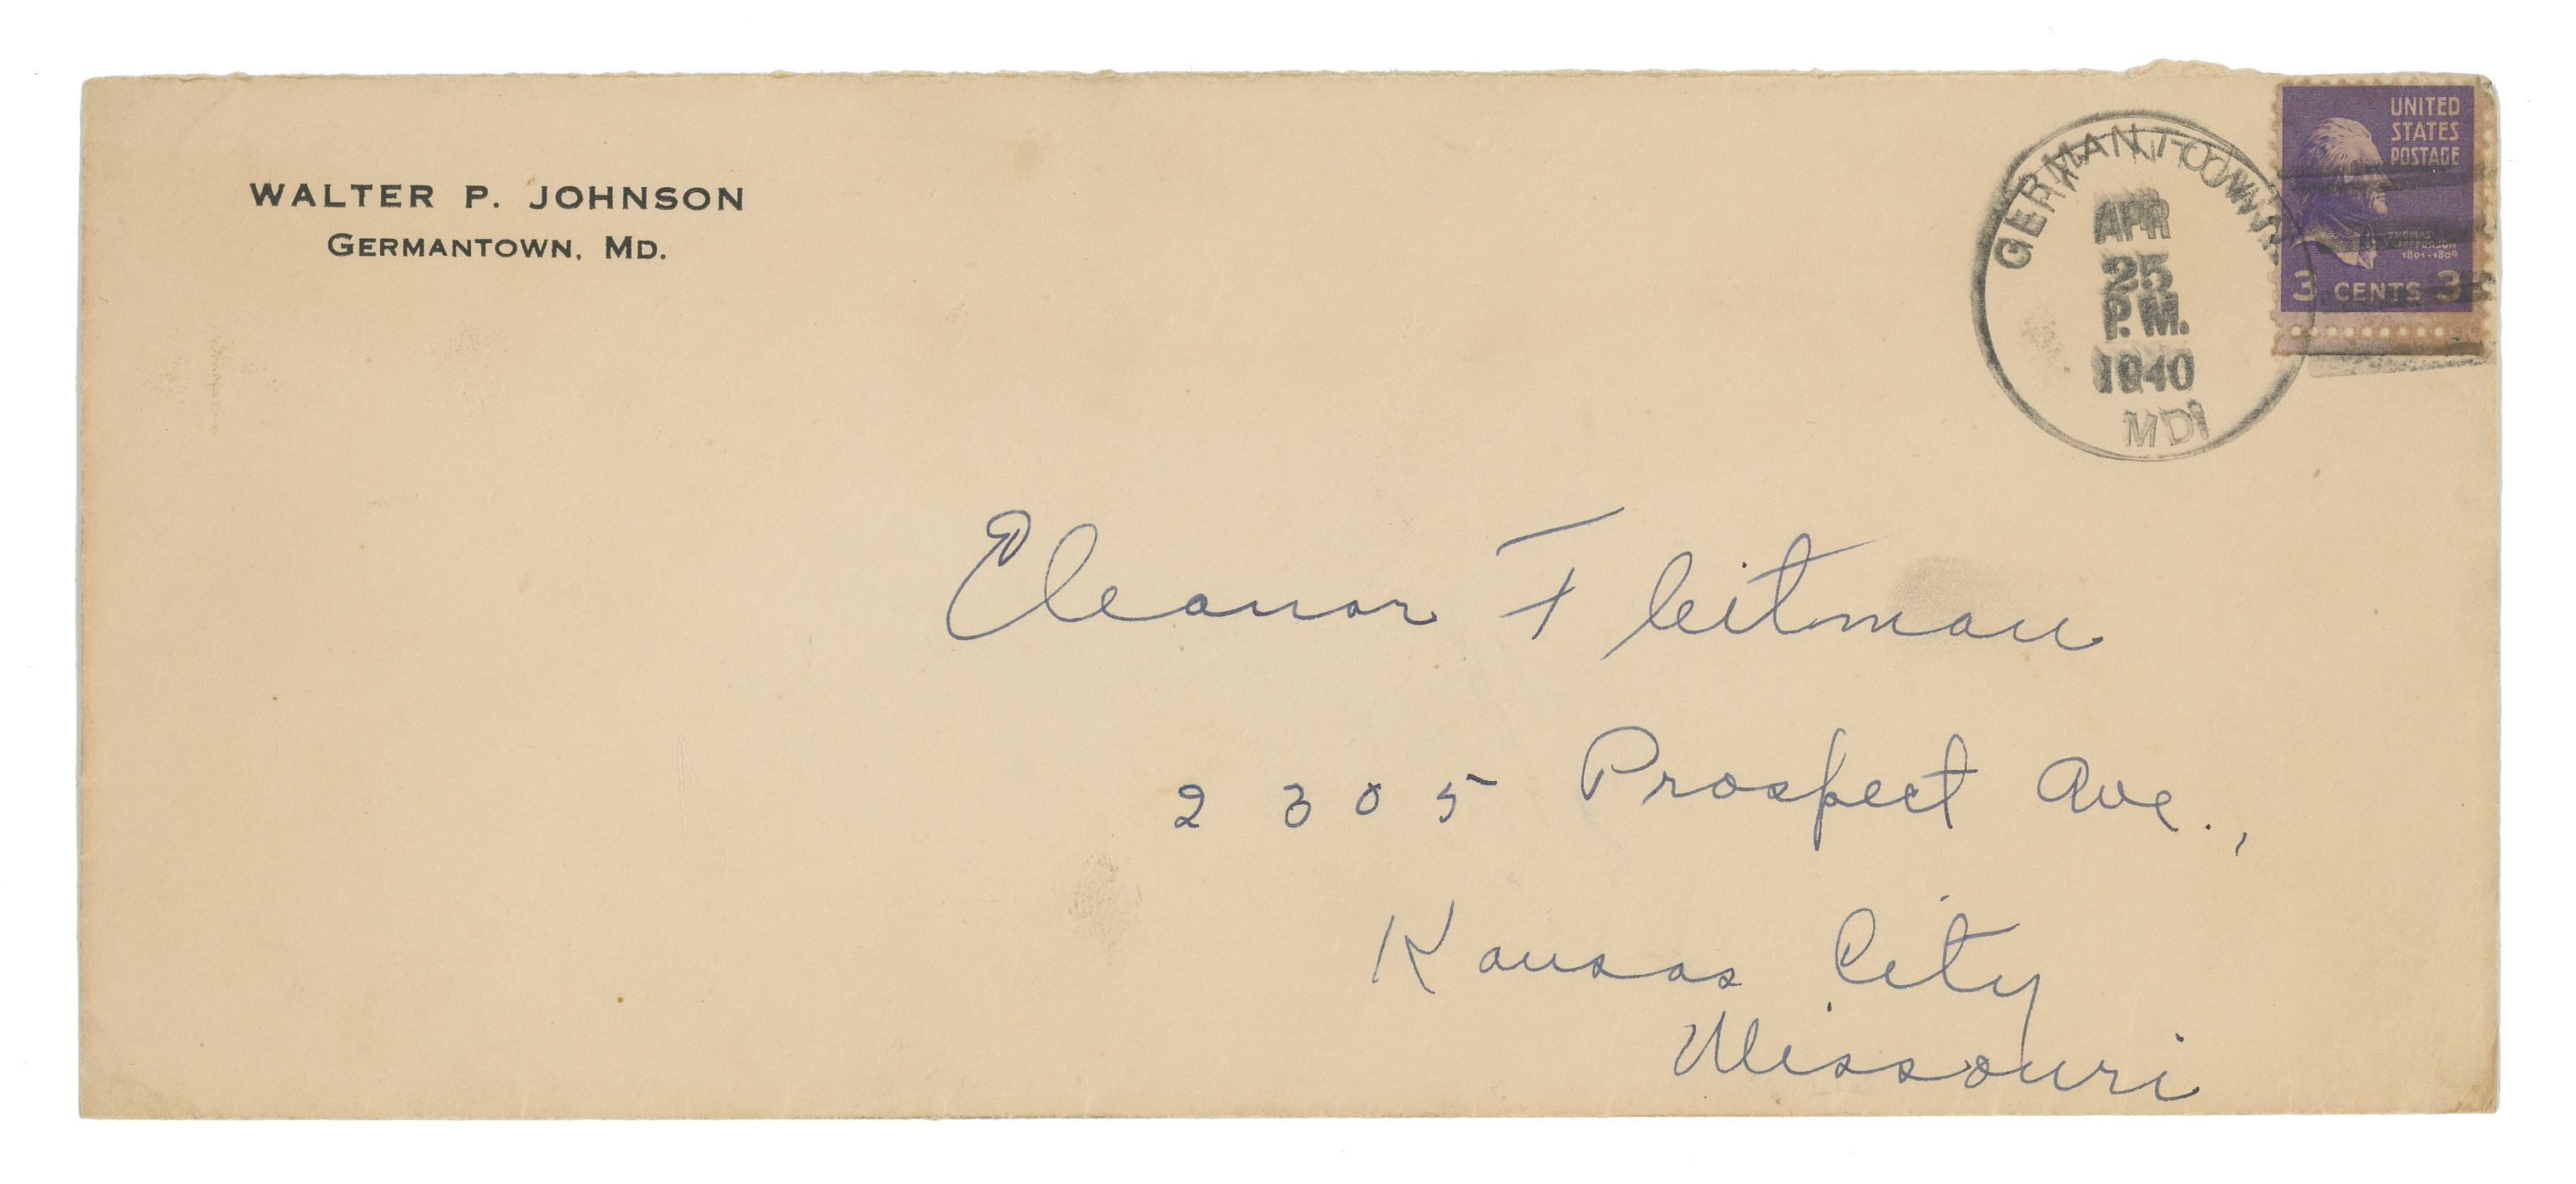 WALTER P. JOHNSON
GERMANTOWN, MD.
GERMANTOWN
APR
25
P.M.
1940
MD
UNITED
STATES
POSTAGE
THOMAS
JEFFERSON
1801-1809
3 CENTS 3
Eleanor Fleitman
2305 Prospect Ave.,
Kansas City
Missouri